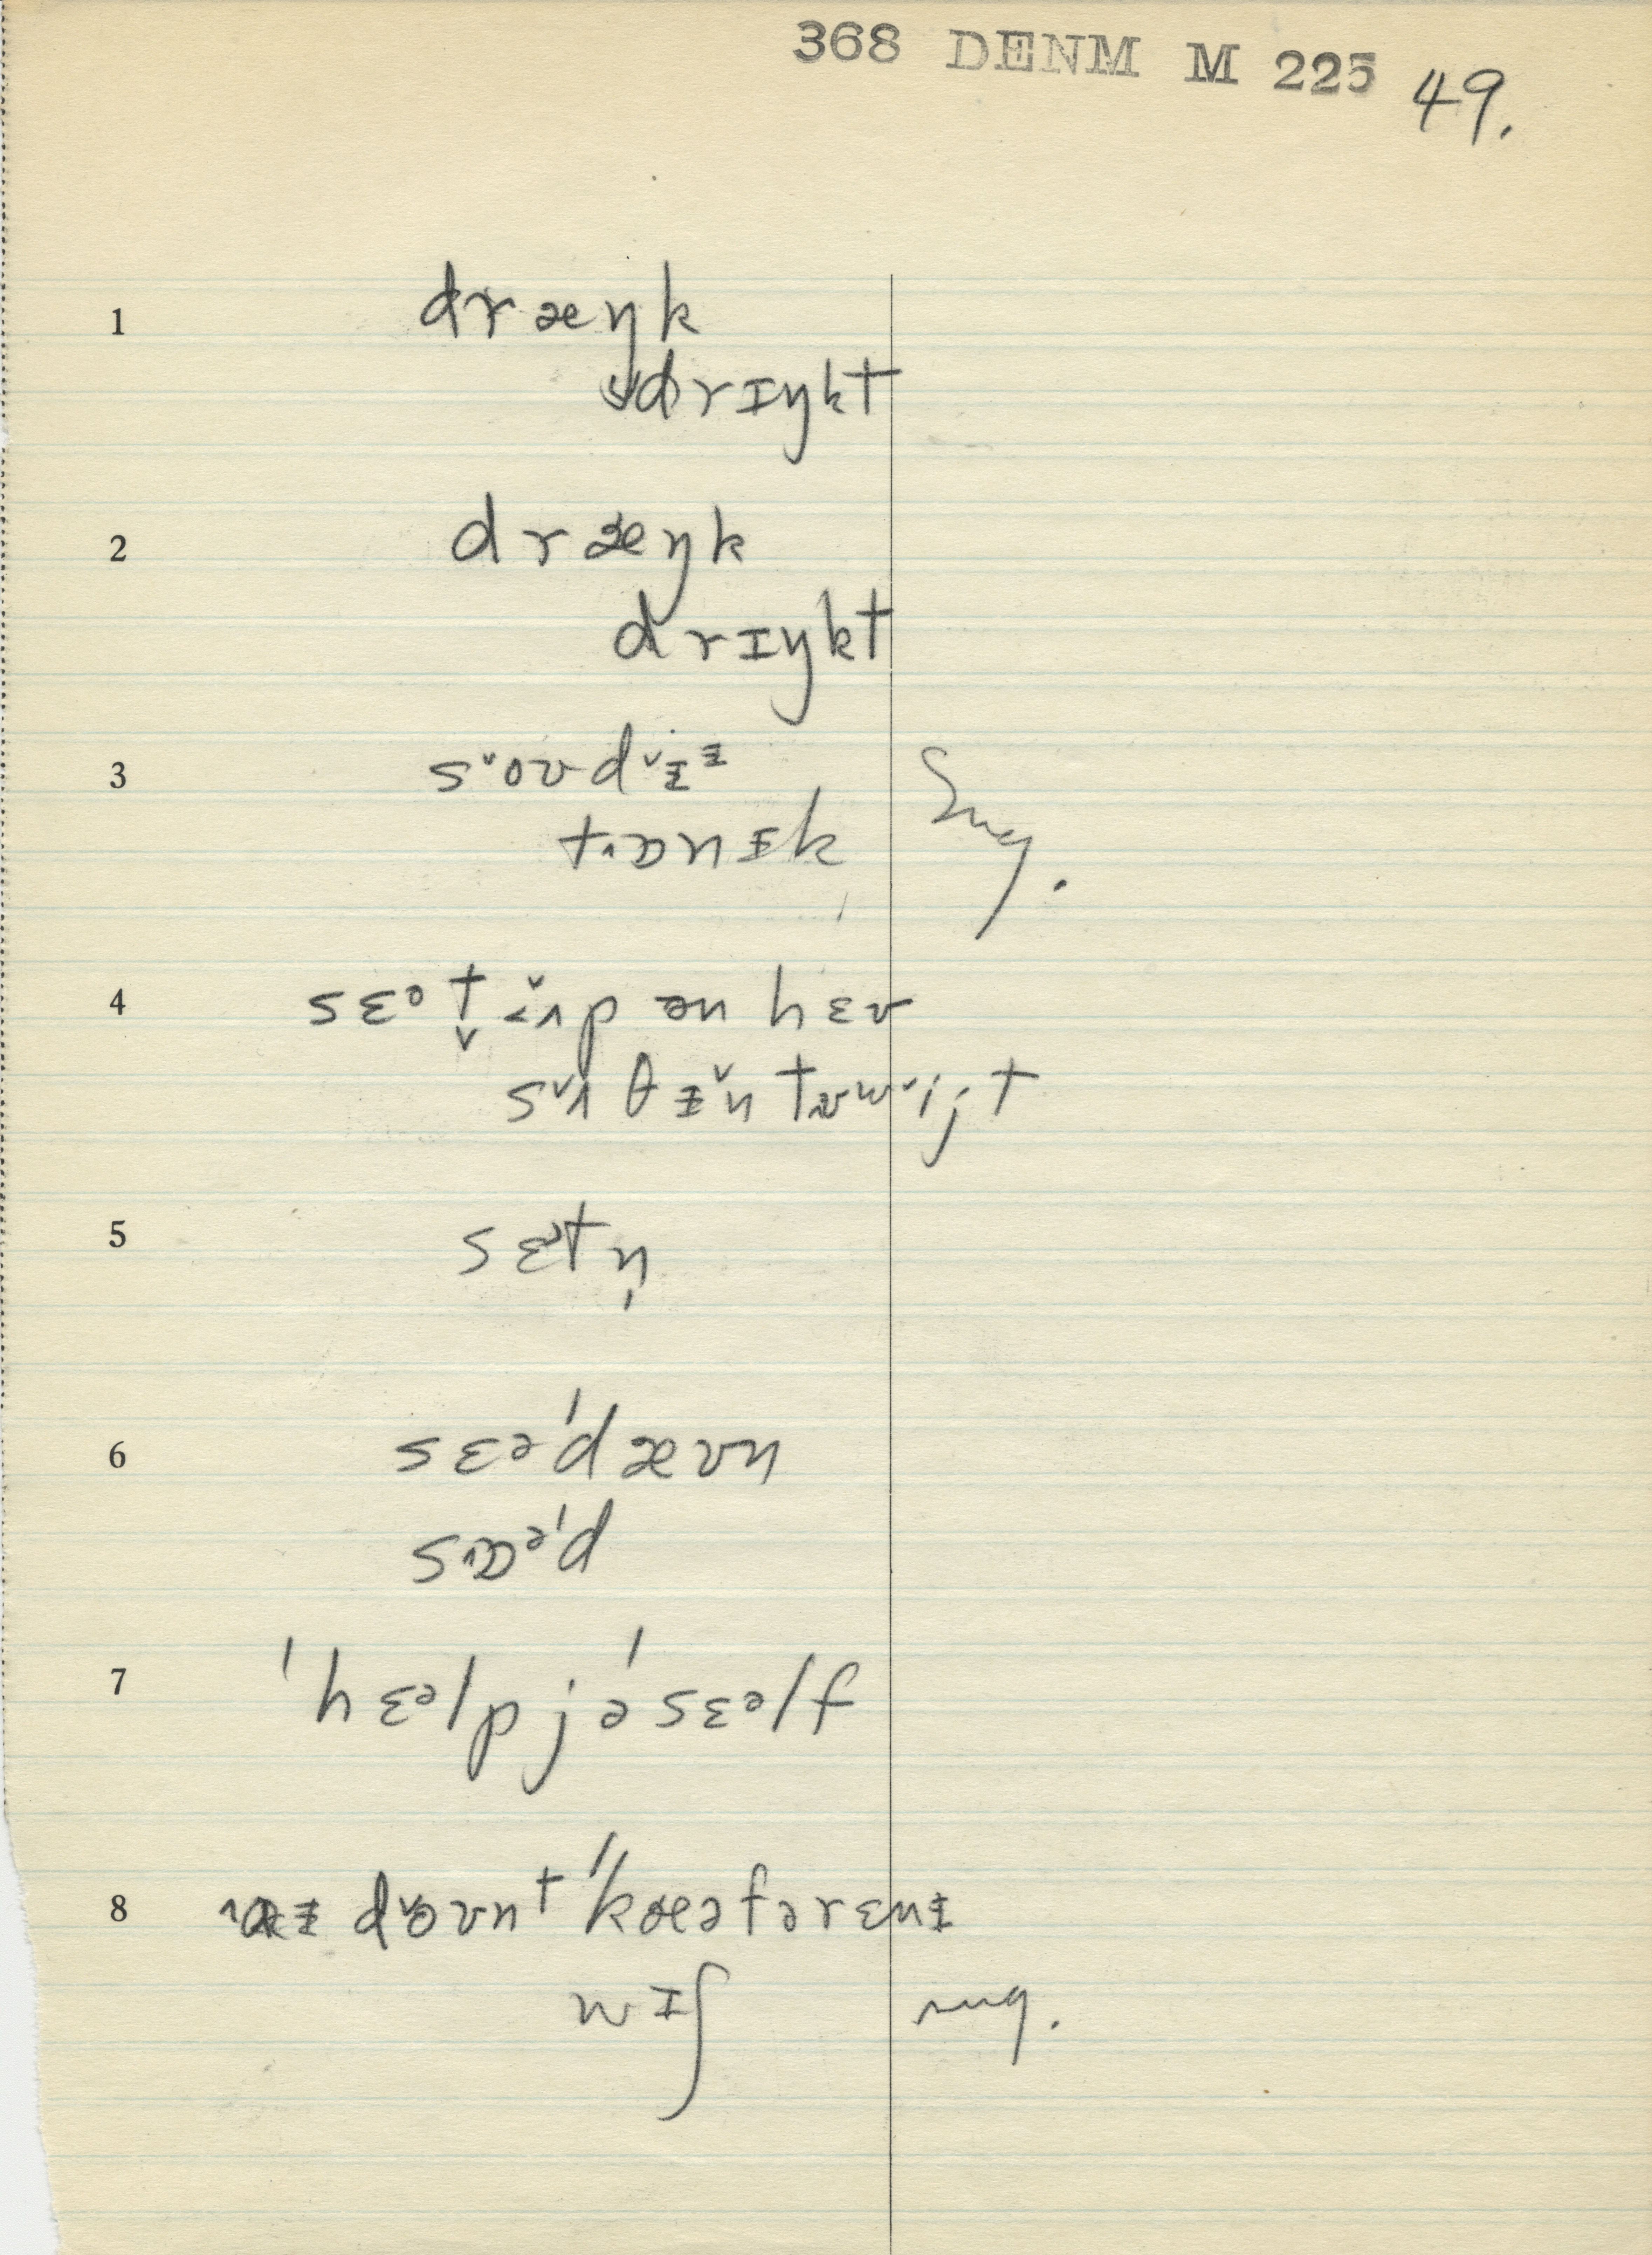 368 DENM M 225 49.
1 dræŋk
drɪŋkt
2 dræŋk
drɪŋkt
3 s˅oʊd˅ᵻᵻ
t˄ɒnᵻk Sug.
4 sɛət̬ ʌp æn hɛv
s˅ʌθᵻ̌n tʊw˅ijt
5 sɛətn̩
6 sɛə'dæʊn
s˄ɒə'd
7 'hɛəlpjə'sɛəlf
8 ˄ɑᵻ d˅oʊnt 'kæəfərɛnᵻ
wɪʃ sug.